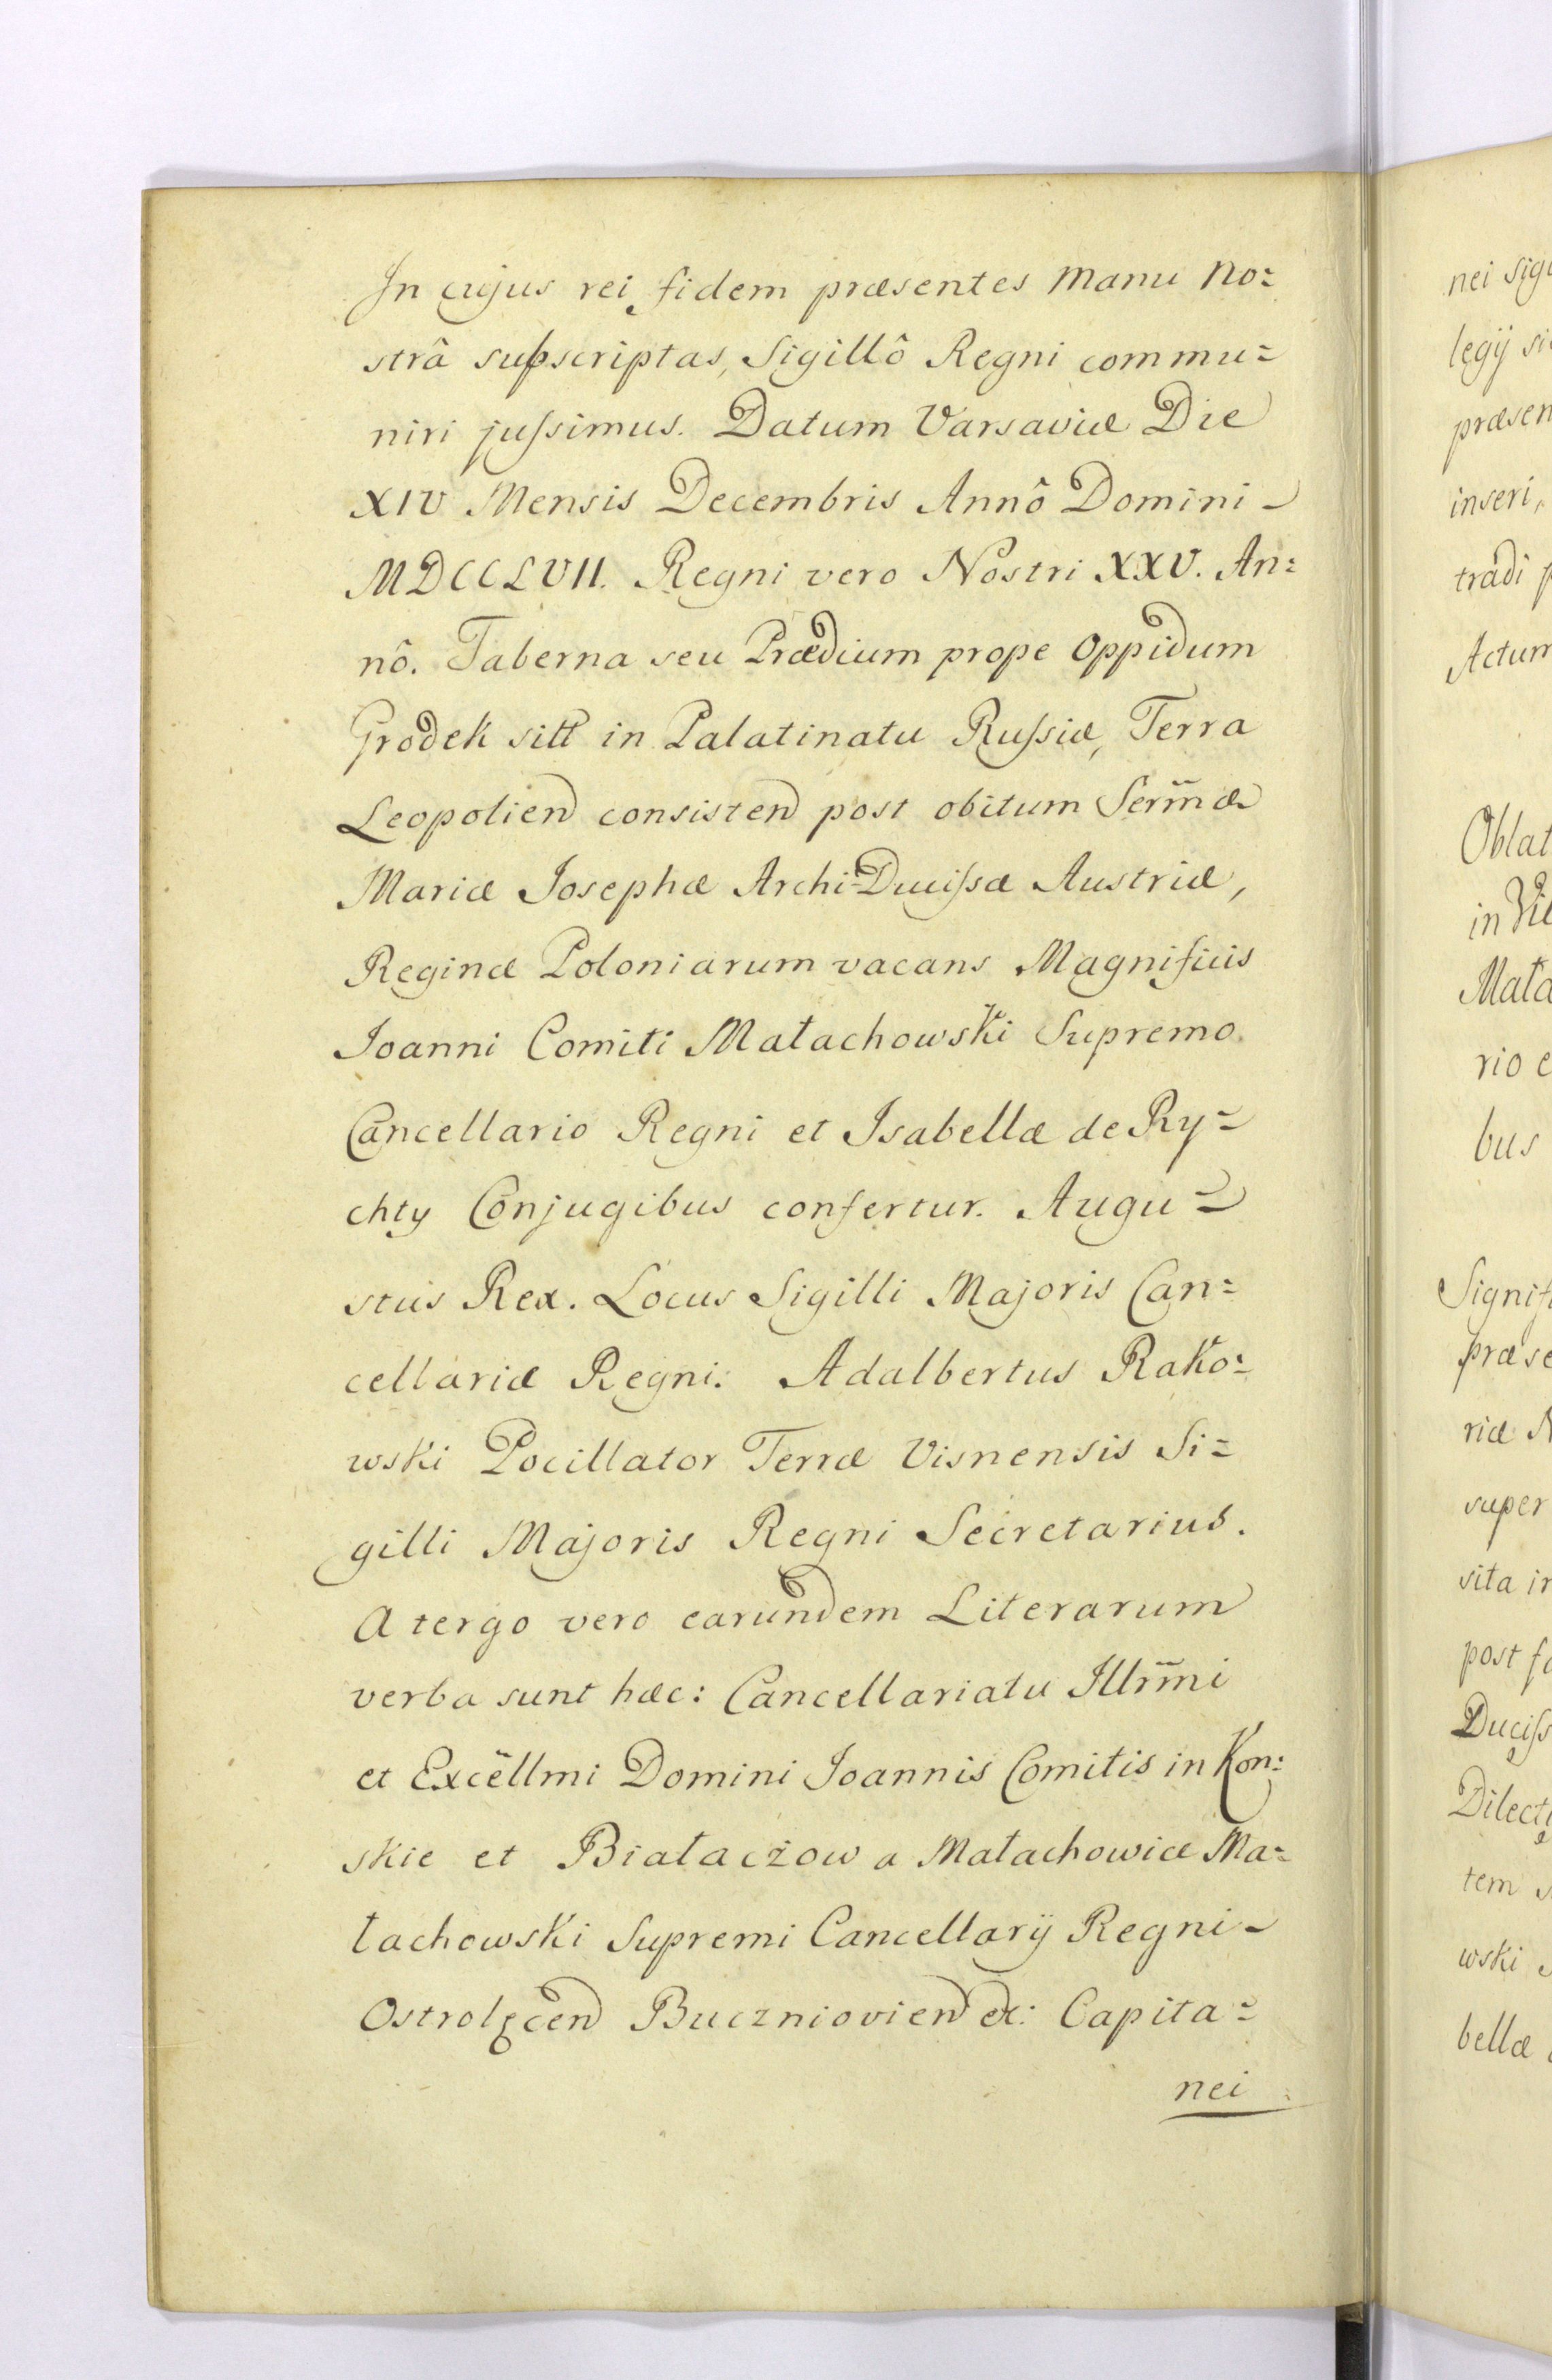 In cujus rei fidem præsentes Manu No=
strâ subscriptas, Sigillô Regni commu=
niri jussimus. Datum Varsaviæ Die
XIV Mensis Decembris Annô Domini -
MDCCLVII. Regni vero Nostri XXV. An=
nô. Taberna seu Prædium prope Oppidum
Grodek sitt in Palatinatu Russiæ, Terra
Leopolien consisten post obitum Serm̃æ
Mariæ Josephæ Archi-Ducissæ Austriæ,
Reginæ Poloniarum vacans Magnificis
Joanni Comiti Małachowski Supremo
Cancellario Regni et Isabellæ de Ry=
chty Conjugibus confertur. Augu=
stus Rex. Locus Sigilli Majoris Can=
cellariæ Regni: Adalbertus Rako=
wski Pocillator Terræ Visnensis Si=
gilli Majoris Regni Secretarius.
A tergo vero earundem Literarum
verba sunt hæc: Cancellariatu Illrm̃i
et Excellmi Domini Joannis Comitis in Kon=
skie et Białaczow a Małachowice Ma=
łachowski Supremi Cancellarij Regni -
Ostrolęcen Buczniovien &c: Capita=
nei
nei
præsen
inseri,
tradi
Actum
Oblat
in
Mała
rio
bus
præse
riæ
super
sita
post
Dilecti
tem
wski
bellæ